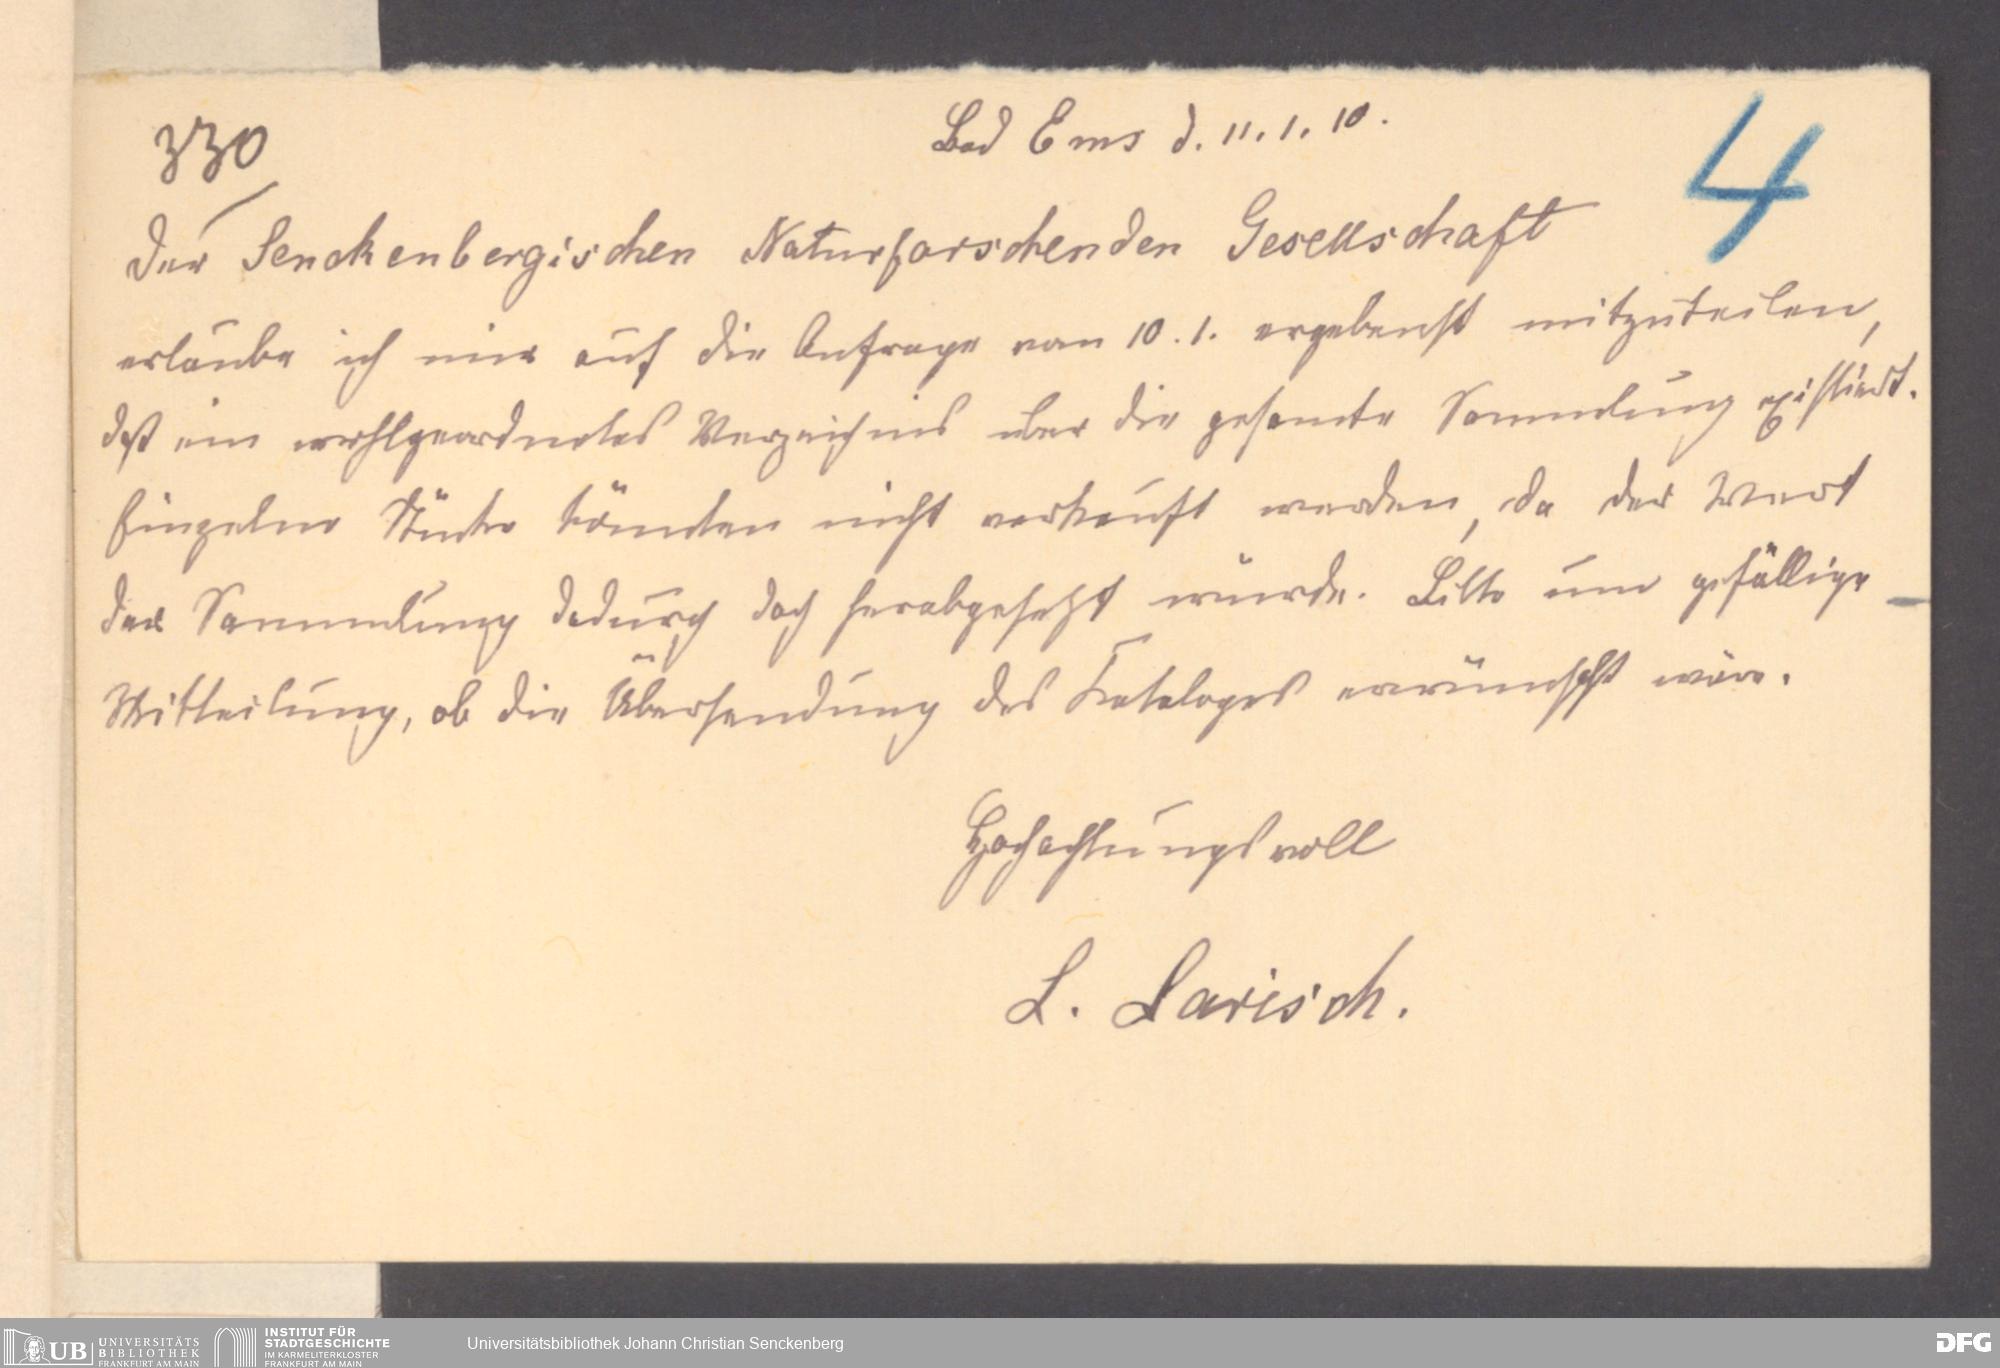 330
Bad Ems d. 11. 1. 10.
4
Der Senckenbergischen Naturforschenden Gesellschaft
erlaube ich mir auf die Anfrage vom 10. 1. ergebenst mitzuteilen,
daß ein wohlgeordnetes Verzeichnis über die gesamte Sammlung existiert.
Einzelne Stücke könnten nicht verkauft werden, da der Wert
der Sammlung dadurch doch herabgesetzt würde. Bitte um gefällige
Mitteilung, ob die Übersendung des Kataloges erwünscht wäre.
Hochachtungsvoll
L. Larisch.
UB UNIVERSITÄTS
BIBLIOTHEK
FRANKFURT AM MAIN
INSTITUT FÜR
STADTGESCHICHTE
IM KARMELITERKLOSTER
FRANKFURT AM MAIN
Universitätsbibliothek Johann Christian Senckenberg
DFG